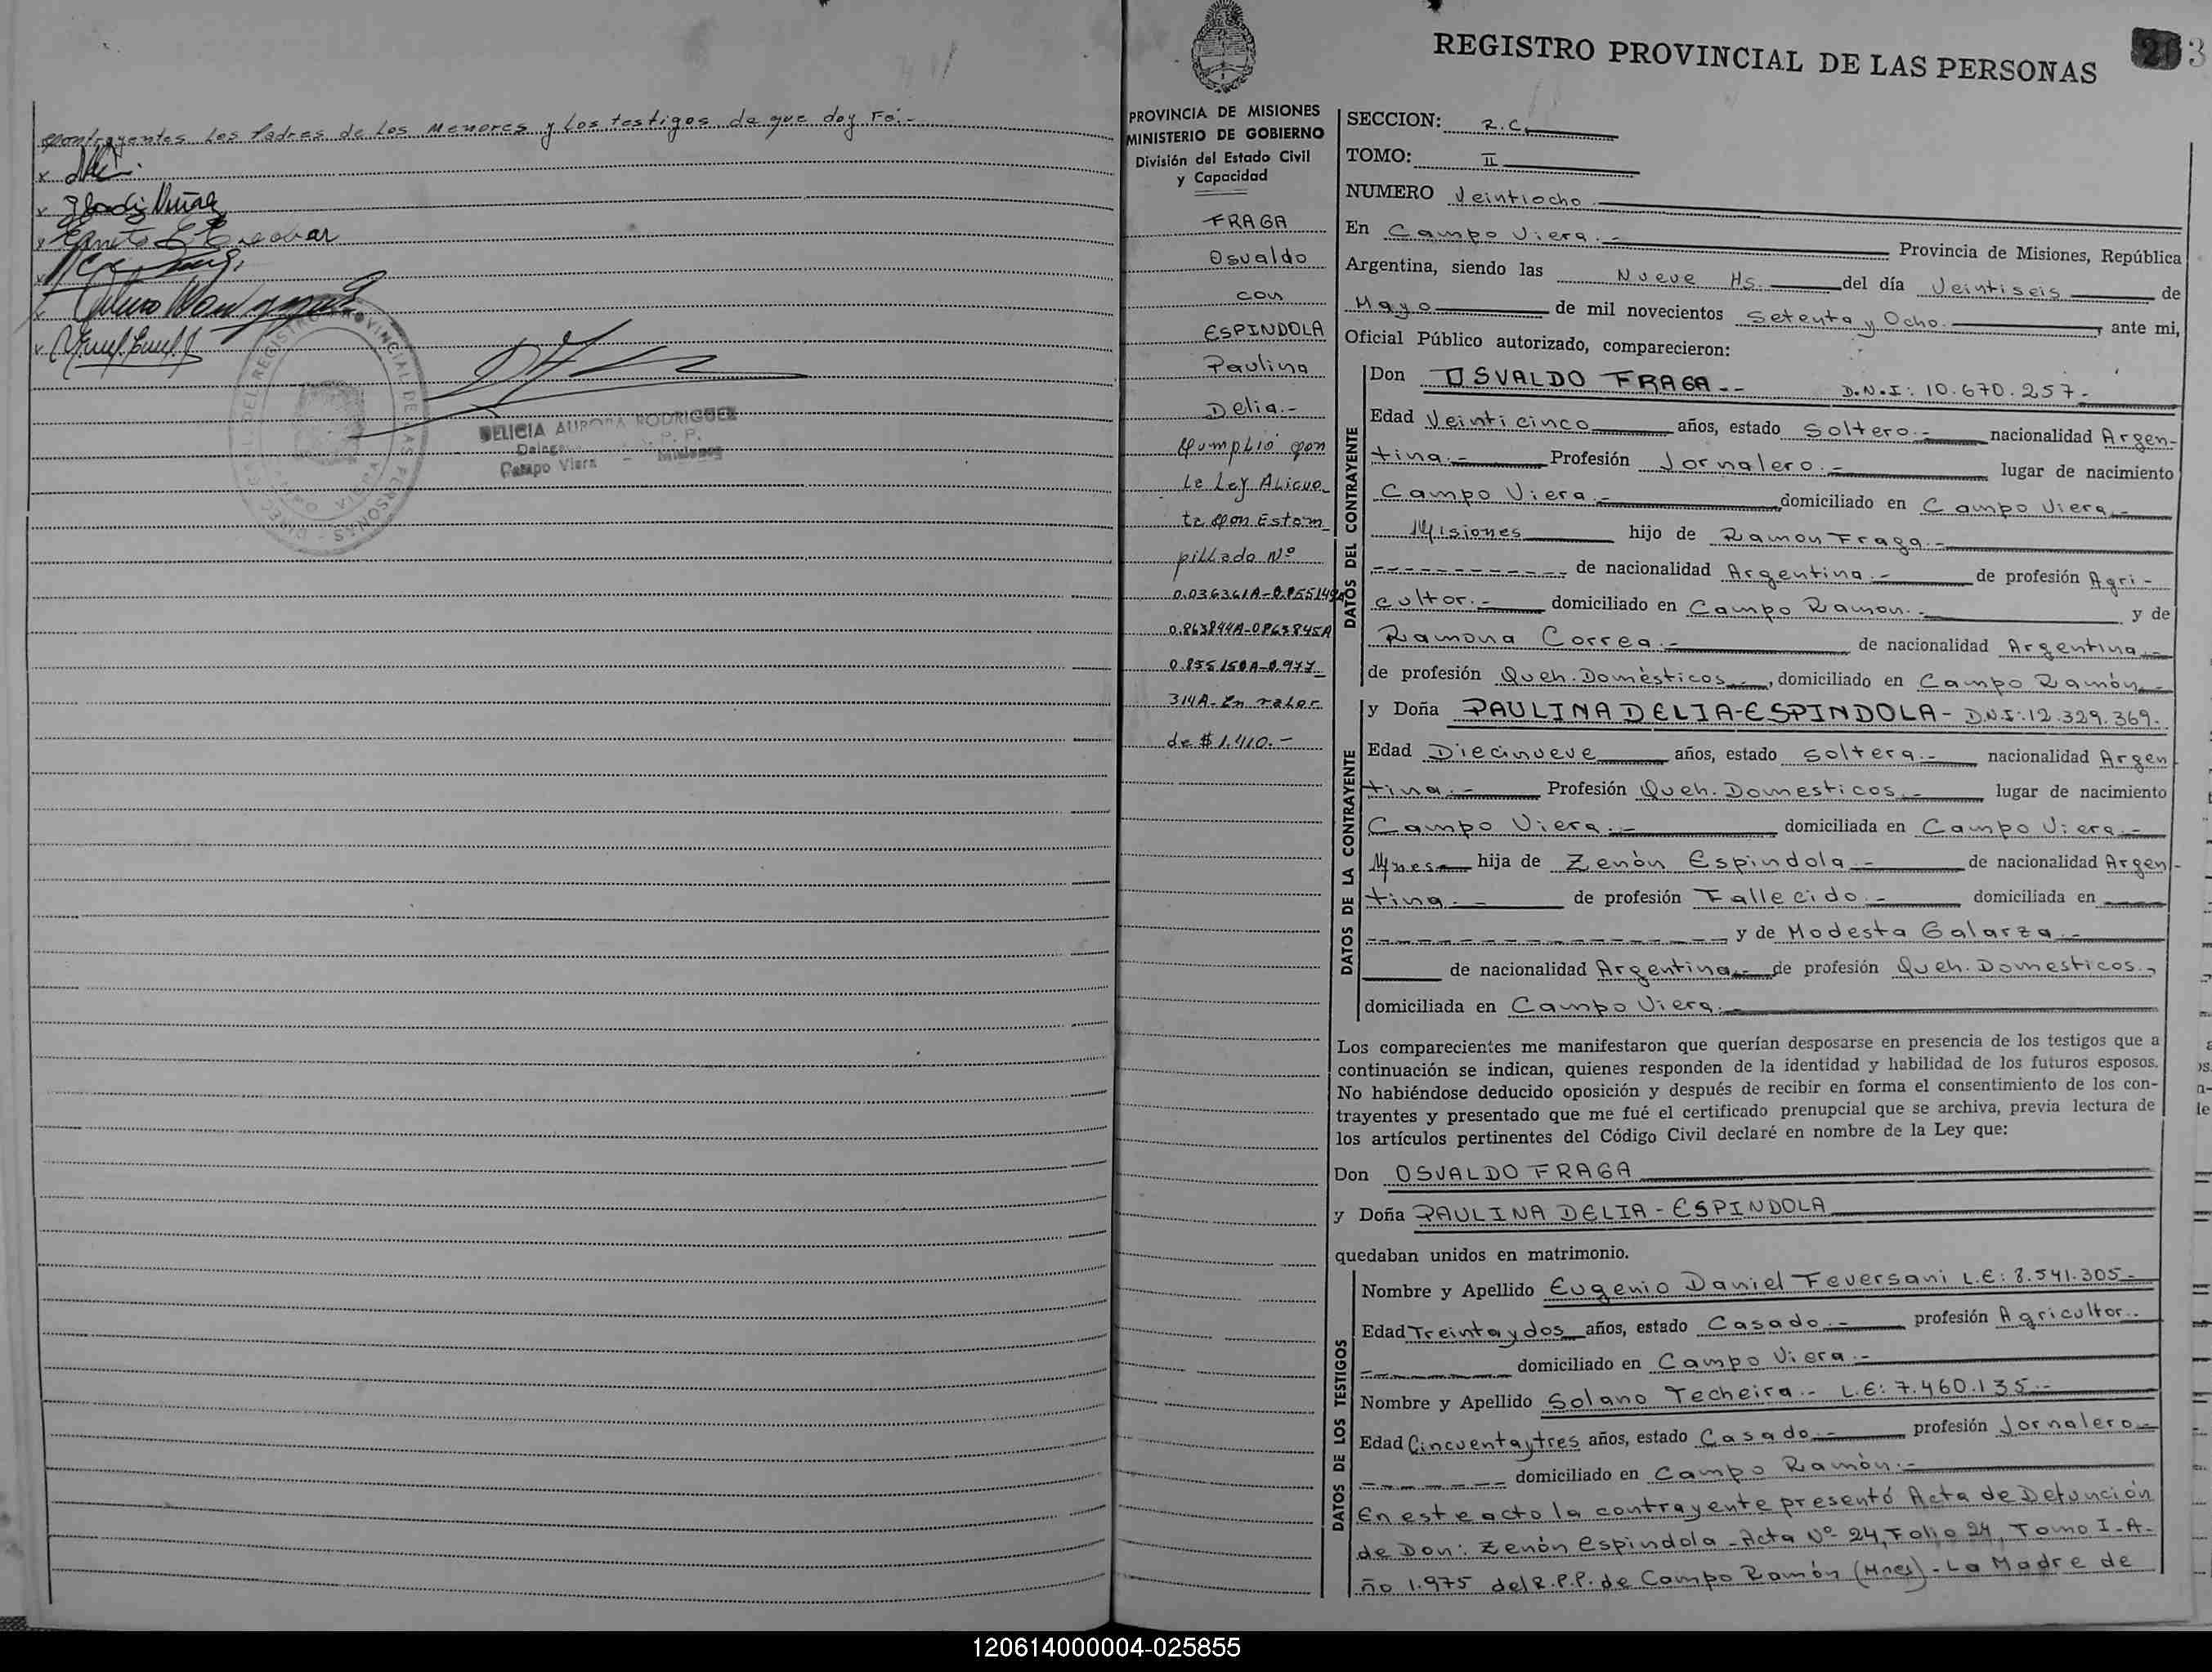 contrayentes Los Padres de Los Menores y Los testigos de que doy Fé.-
Gladis
Ernesto E Escobar
Arturo
REGISTRO PROVINCIAL DE LAS PERSONAS
DELICIA AURORA RODRIGUEZ
Campo Viera - Misiones
REGISTRO PROVINCIAL DE LAS PERSONAS
3
PROVINCIA DE MISIONES
MINISTERIO DE GOBIERNO
División del Estado Civil
y Capacidad
FRAGA
Osvaldo
con
ESPINDOLA
Paulina
Delia.-
Cumplió con
La Ley ALicuo_
ta con Estam_
pillado Nº
0.036361A-0.855149A
0.863844A-0863845A
0.855150A-0.977_
314A- En valor
de $ 1.410.-
SECCION: R.C.
TOMO: II
NUMERO Veintiocho.
En Campo Viera.- Provincia de Misiones, República
Argentina, siendo las Nueve Hs. del día Veintiseis de
Mayo de mil novecientos Setenta y Ocho. , ante mi,
Oficial Público autorizado, comparecieron:
DATOS DEL CONTRAYENTE
Don OSVALDO FRAGA.-- D.N.I: 10.670.257.-
Edad Veinticinco años, estado Soltero.- nacionalidad Argen-
tina.- Profesión Jornalero.- lugar de nacimiento
Campo Viera.- domiciliado en Campo Viera.-
Misiones hijo de Ramon Fraga.-
de nacionalidad Argentina.- de profesión Agri-
cultor.- domiciliado en Campo Ramon.- y de
Ramona Correa.- de nacionalidad Argentina.-
de profesión Queh. Domésticos.-, domiciliado en Campo Ramón.-
DATOS DE LA CONTRAYENTE
y Doña PAULINA DELIA-ESPINDOLA- D.N.I:12.329.369.
Edad Diecinueve años, estado Soltera.- nacionalidad Argen
tina.- Profesión Queh. Domesticos.- lugar de nacimiento
Campo Viera.- domiciliada en Campo Viera.-
Mnes hija de Zenón Espindola.- de nacionalidad Argen-
tina.- de profesión Fallecido.- domiciliada en
y de Modesta Galarza.-
de nacionalidad Argentina.- de profesión Queh. Domesticos.,
domiciliada en Campo Viera.-
Los comparecientes me manifestaron que querían desposarse en presencia de los testigos que a
continuación se indican, quienes responden de la identidad y habilidad de los futuros esposos.
No habiéndose deducido oposición y después de recibir en forma el consentimiento de los con-
trayentes y presentado que me fué el certificado prenupcial que se archiva, previa lectura de
los artículos pertinentes del Código Civil declaré en nombre de la Ley que:
Don OSVALDO FRAGA
y Doña PAULINA DELIA - ESPINDOLA
quedaban unidos en matrimonio.
DATOS DE LOS TESTIGOS
Nombre y Apellido Eugenio Daniel Feversani L.E: 8.541.305-
Edad Treinta y dos años, estado Casado.- profesión Agricultor..
domiciliado en Campo Viera.-
Nombre y Apellido Solano Techeira.- L.E: 7.460.135.-
Edad Cincuenta y tres años, estado Casado.- profesión Jornalero-
domiciliado en Campo Ramón.-
En este acto la contrayente presentó Acta de Defunción
de Don: Zenón Espindola - Acta Nº 24, Folio 24, Tomo I-A-
ño 1.975 del R.P.P. de Campo Ramón (Mnes) - La Madre de
120614000004-025855